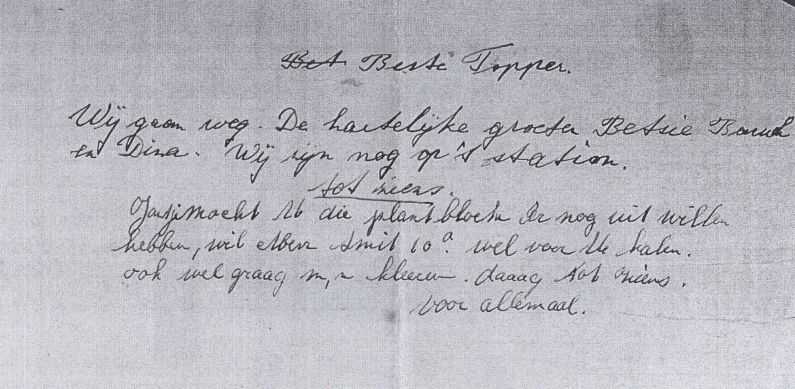 Bet Beste Topper.
Wij gaan weg. De hartelijke groeten Betsie Baruch
en Dina. Wij zijn nog op 't station.
tot ziens.
mocht U die plant bloem er nog uit willen
hebben, wil Smit 10a. wel voor U halen.
ook wel graag m,n kleeren. daaag tot ziens.
voor allemaal.